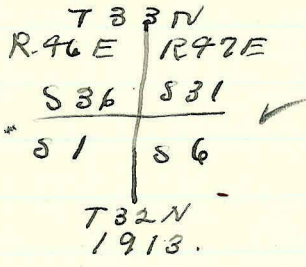 T 33 N
R 46 E R 47 E
S 36 S 31
S 1 S 6
T 32 N
1913.